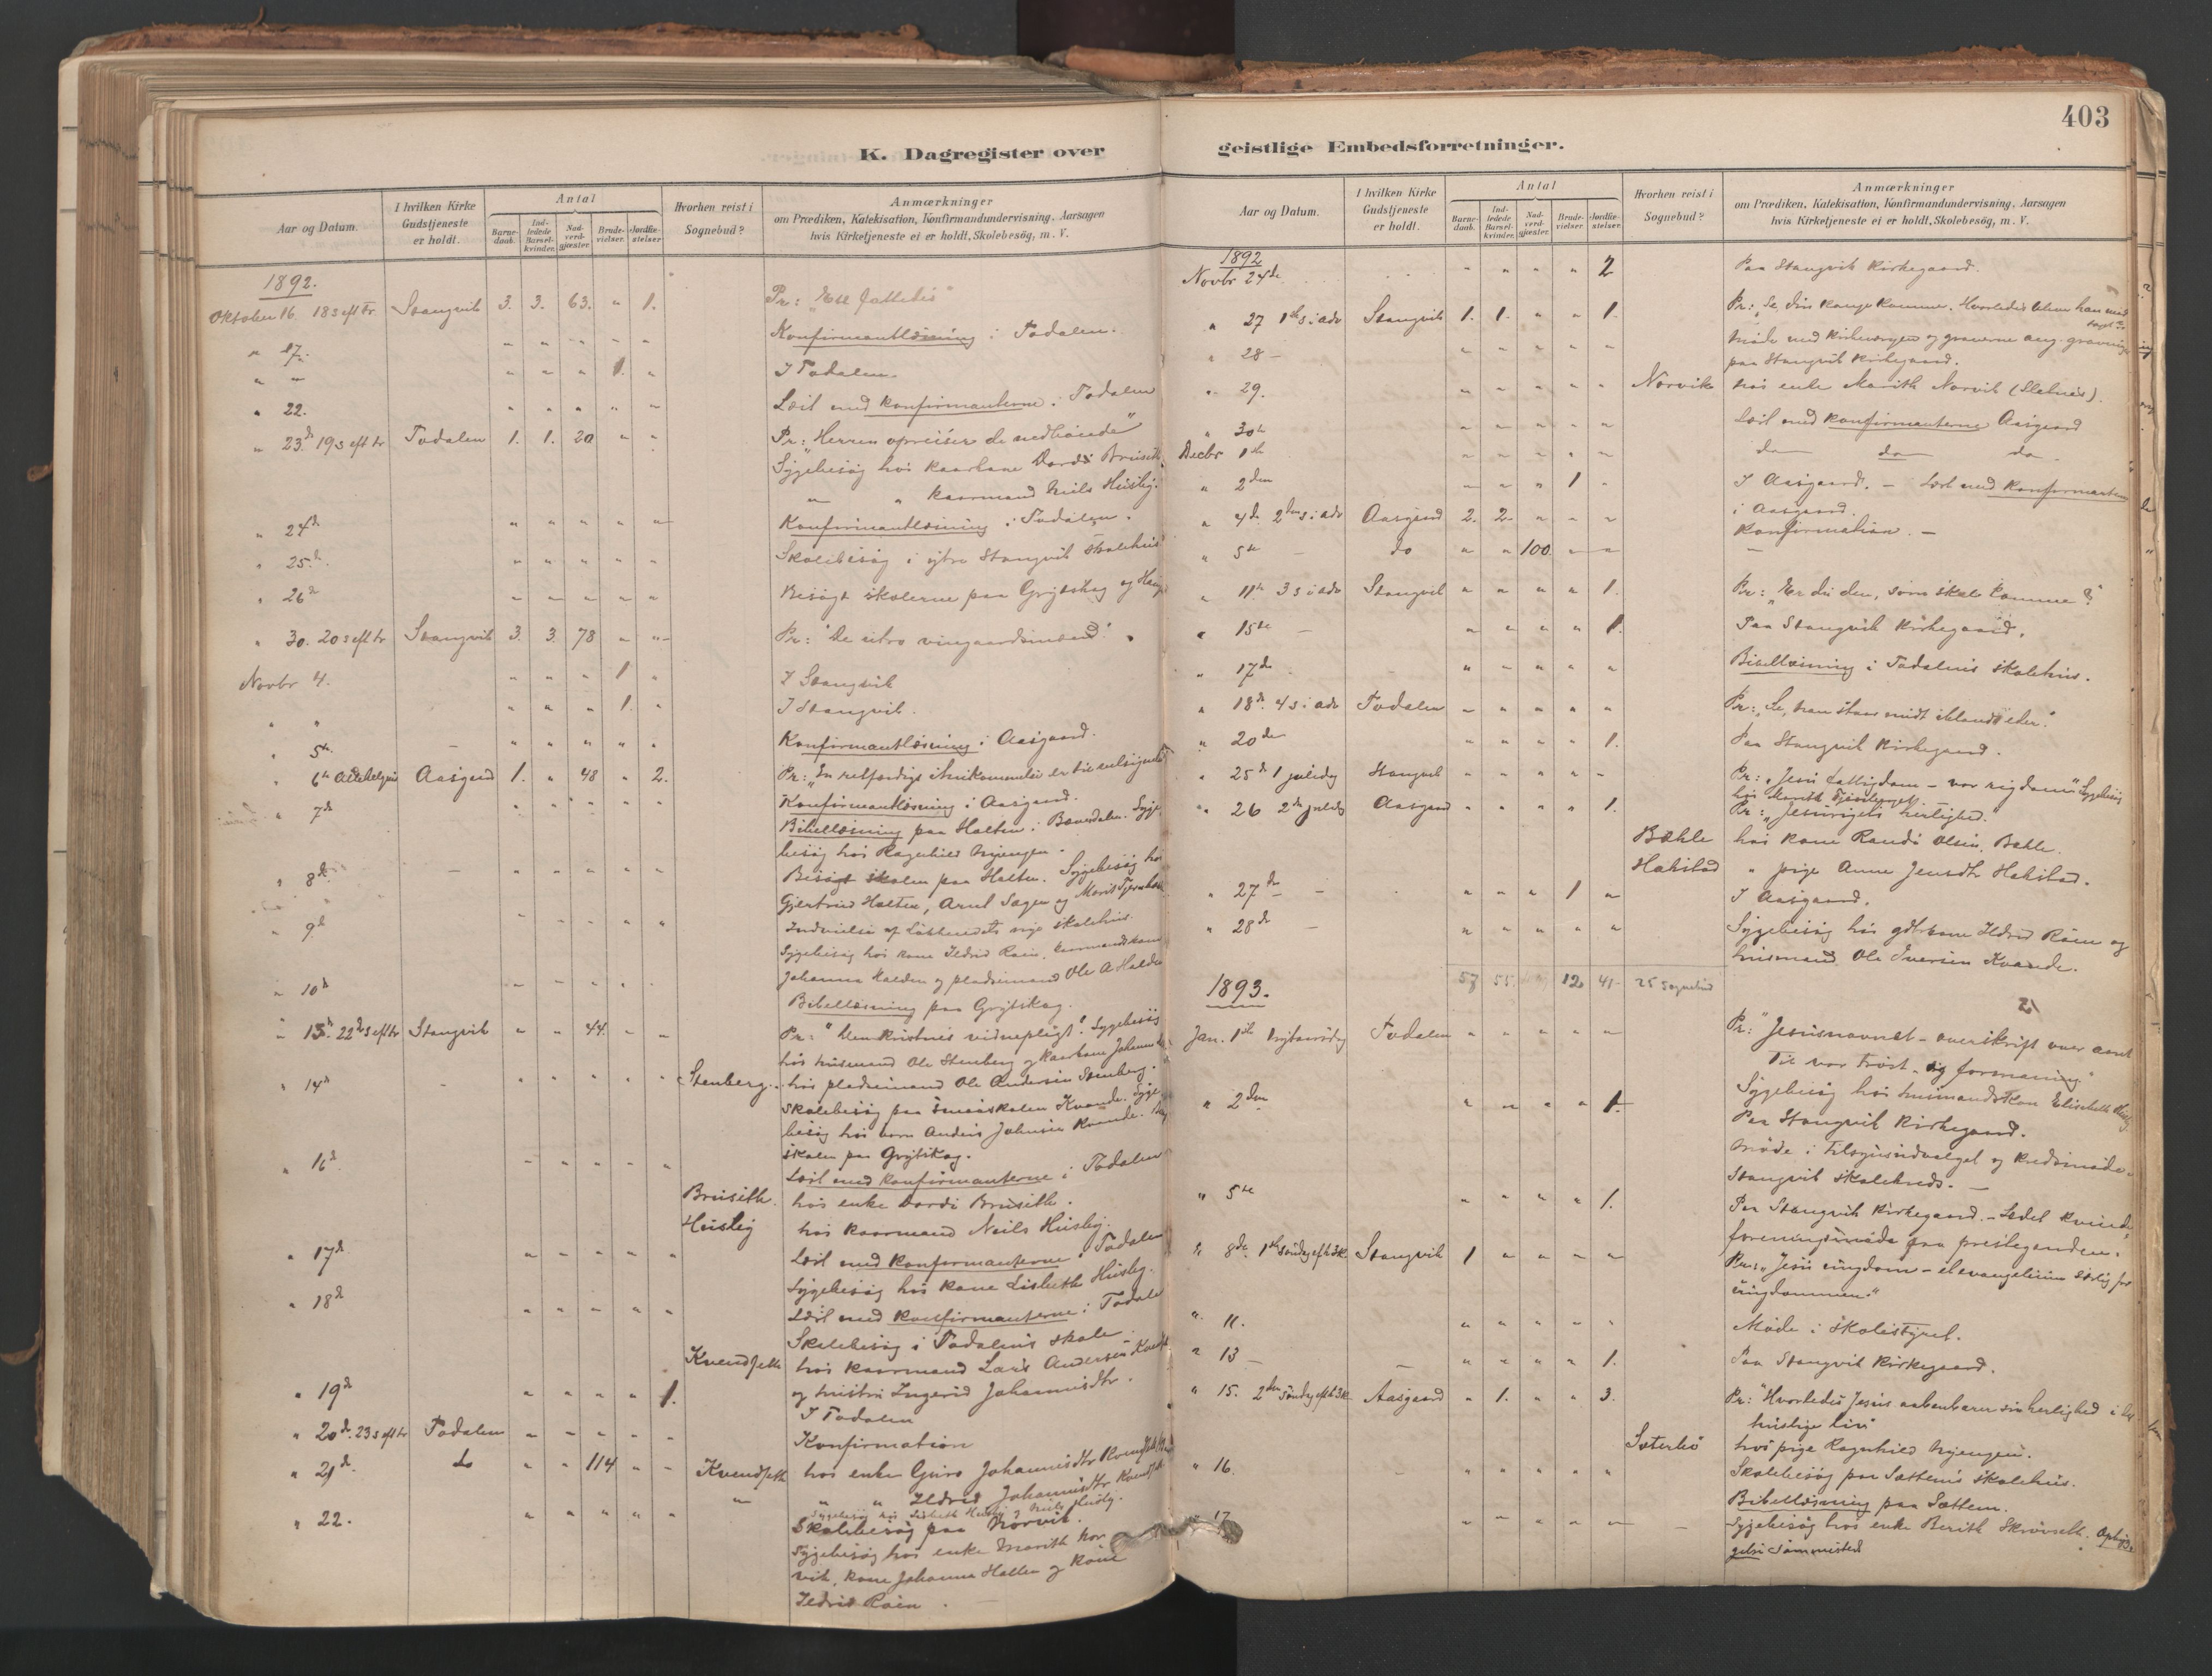 403
K. Dagregister over geistlige Embedsforretninger.
Aar og Datum.
I hvilken Kirke Gudstjeneste er holdt.
Antal
Barne-daab.
Ind-ledede Barsel-kvinder.
Nad-verd-gjæster.
Brude-vielser.
Jordfæ-stelser
Hvorhen reist i Sognebud?
Anmærkninger
om Prædiken, Katekisation, Konfirmandundervisning, Aarsagen
hvis Kirketjeneste ei er holdt, Skolebesög, m. V.
1892.
Oktober 16. 18 s eft tr Stangvik 3. 3. 63. " 1. Pr:
" 17. Konfirmantlæsning i Todalen.
" " 1. I Todalen
" 22. Læst med konfirmanterne i Todalen
" 23d 19 s eft tr Todalen 1. 1. 20 " " Pr: "Herren opreiser de nedböiede"
Sygebesög hos kaarkone Dordi Bruseth
" " kaarmand Niels Husby.
" 24d Konfirmantlæsning i Todalen.
" 25d. Skolebesög i ytre Stangvik skolehus
" 26d Besögt skolerne paa Grytskog og
" 30. 20 s eft tr Stangvik 3. 3. 78 " " Pr: "De utro vingaardsmænd".
Novbr 4. 1 I Stangvik
" " 1. I Stangvik.
" 5te. Konfirmantlæsning i Aasgaard.
" 6te Allehelgens Aasgaard 1. " 48 " 2.
" 7d Konfirmantlæsning i Aasgaard.
Bibellæsning paa Halten i Bæverdalen. Syge-
besög hos Ragnhild Nyengen.
" 8d. Besögt skolen paa Halten. Sygebesög hos
Gjertrud Halten, Arnt Sagen og
" 9d Indvielse af nye skolehus.
Sygebesög hos kone Ildrid Röen, kaarmandskone
Johanna Halden og pladsemand Ole A Halden
" 10d Bibellæsning paa Grytskog.
" 13d. 22d s eft tr Stangvik " " 44. " " Pr: "Den kristnes vidnepligt". Sygebesög
hos husmand Ole Stenberg og kaarkone
" 14d Stenberg. hos pladsemand Ole Andersen Stenberg.
Skolebesög paa smaaskolen Kvande. Syge-
besög hos barn Anders Johnsen Kvande.
skolen paa Grytskog.
" 16d. Læst med konfirmanterne i Todalen
Bruseth. hos enke Dordi Bruseth.
Husby hos kaarmand Neils Husby.
" 17d Læst med konfirmanterne i Todalen
Sygebesög hos kone Lisbeth Husby.
" 18d Læst med konfirmanterne i Todalen
Skolebesög i Todalens skole
Kvendseth hos kaarmand Lars Andersen
" 19d 1. og hustru Ingerid Johannesdtr.
I Todalen
" 20d. 23 s eft tr Todalen Konfirmation
" 21d. do " " 114 " " Kvendseth hos enke Guro Johannesdtr
" " " Ildrid Johannesdtr
Sygebesög hos Lisbeth Husby og Niels Husby.
" 22. Skolebesög paa Norvik.
Sygebesög hos enke Marith Nor-
vik, kone Johanna Halten og kone
Ildrid Röen.
1892
Novbr 24de 2 Paa Stangvik kirkegaard.
" 27 1ste s i adv Stangvik 1. 1. " " 1. Pr: "Se din konge kommer.
" 28 Möde med kirkevergen og graverne ang. gravning
paa Stangvik kirkegaard.
" 29. Norvik hos enke Marith Norvik (Sletnes).
" 30te Læst med konfirmanterne Aasgaard
Decbr 1ste do do do
" 2den 1 I Aasgaard. - Læst med konfirmanterne
i Aasgaard.
" 4de 2den s i adv Aasgaard 2. 2. Konfirmation.
" 5te do " " 100. " "
" 11te 3 s i adv Stangvik 1. Pr: "Er du den, som skal komme?"
" 15te 1. Paa Stangvik kirkegaard.
" 17de Bibellæsning i Todalens skolehus.
" 18de. 4 s i adv Todalen Pr: "Se, han staar midt iblandt eder".
" 20de 1. Paa Stangvik kirkegaard.
" 25de 1 juledag Stangvik Pr: "Jesu fattigdom - vor rigdom" Sygebesög
" 26 2den juledag Aasgaard 1. Pr: "Jesurigets herlighed."
Bæhle hos kone Randi Olsen Bæhle.
Halsstad " pige Anne Jensdtr Halsstad.
" 27de 1 I Aasgaard.
" 28de Sygebesög hos gdbrkone Ildrid Röen og
husmand Ole Iversen Kvande.
57 55 12 41 25 sognebud
1893.
Jan. 1ste Nytaarsdag Todalen Pr: "Jesusnavnet - overskrift over aaret
Til vor tröst og formaning"
" 2den 1. Sygebesög hos husmandskone Elisabeth
Paa Stangvik kirkegaard.
Möde i tilsynsudvalget og kredsmöde
Stangvik skolekreds.
" 5te 1. Paa Stangvik kirkegaard. - Ledet kvinde-
foreningsmöde paa prestegaarden.
" 8de. 1ste söndag eft h3k. Stangvik 1 Pr: "Jesu ungdom - et evangelium særlig for
ungdommen"
" 11. Möde i skolestyret.
" 13 1. Paa Stangvik kirkegaard.
" 15. 2den söndag eft h3k. Aasgaard " 1. " " 3. Pr: "Hvorledes Jesus aabenbarer sin herlighed i det
huslige liv"
Sæterbö hos pige Ragnhild Nyengen.
" 16. Skolebesög paa Sættems skolehus.
Bibellæsning paa Sættem.
" 17 Sygebesög hos enke Berith Skrövseth.
gelse sammested